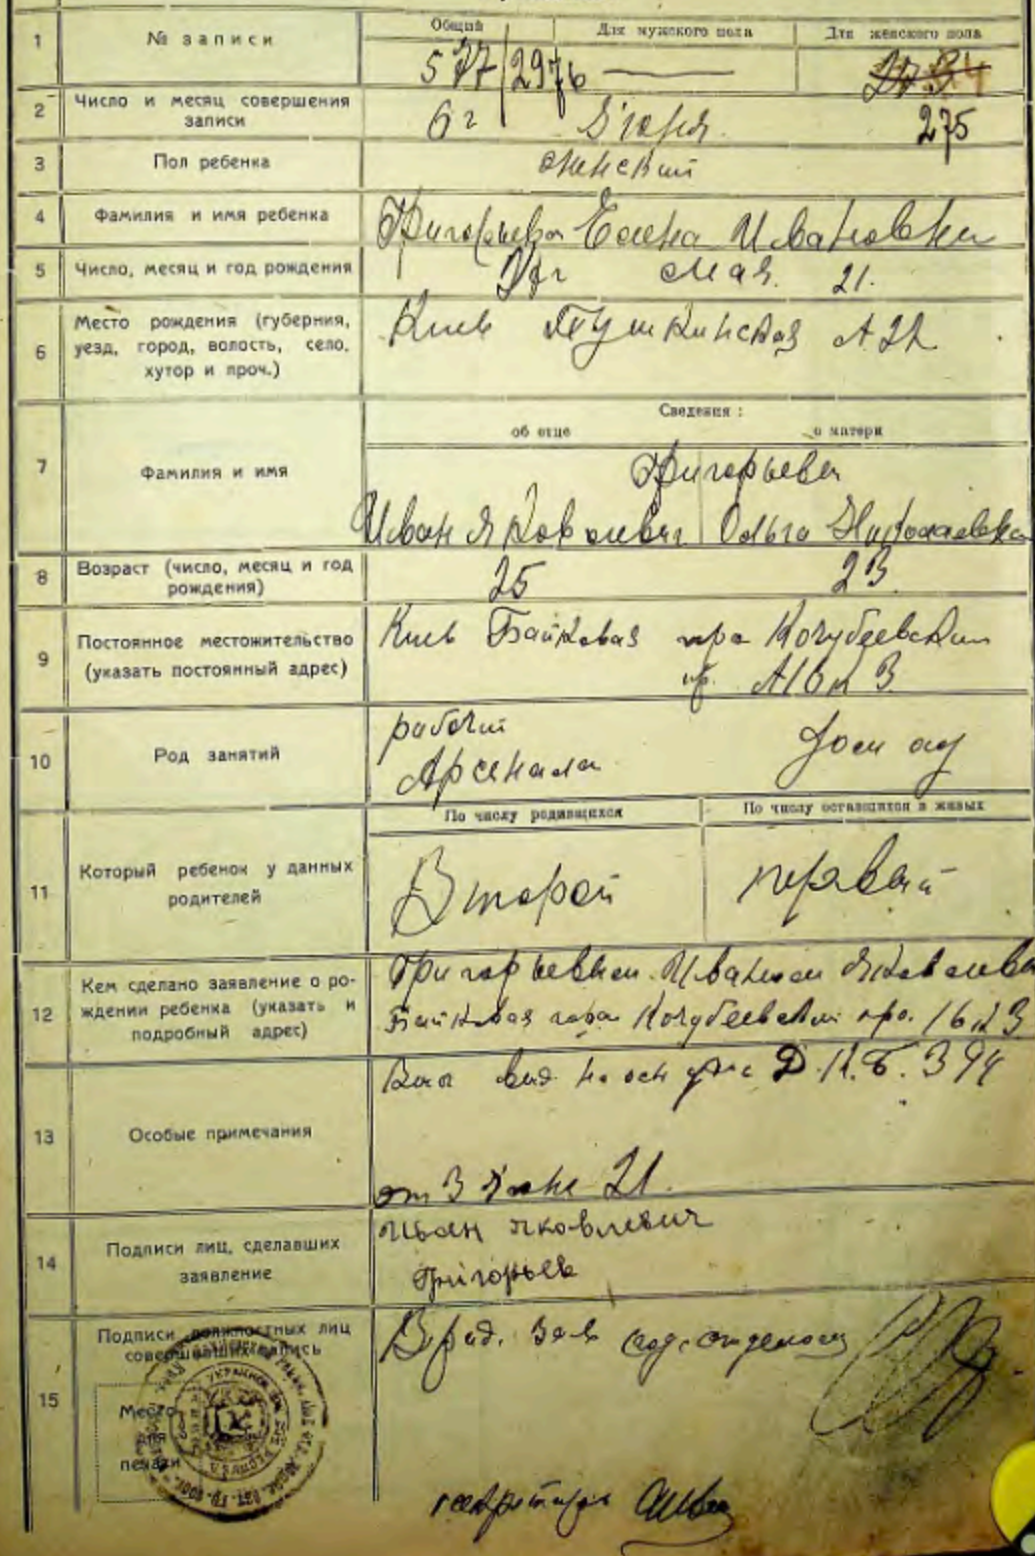 1 № записи Общий Для мужского пола Для женского пола
577/2976 — 274
275
2 Число и месяц совершения
записи
6 г Июня
3 Пол ребенка женский
4 Фамилия и имя ребенка Григорьева Елена Ивановна
5 Число, месяц и год рождения Мая 21.
6 Место рождения (губерния,
уезд, город, волость, село,
хутор и проч.)
Киев Пушкинская
Сведения:
об отце о матери
7 Фамилия и имя
Григорьевы
Иван Яковлевич Ольга Николаевна
8 Возраст (число, месяц и год
рождения)
25 23
9 Постоянное местожительство
(указать постоянный адрес)
Киев Байковая гора Кочубеевский
пр. №16 к 3
10 Род занятий
рабочий
Арсенала
дом
По числу родившихся По числу оставшихся в живых
11 Который ребенок у данных
родителей
Второй первый
12 Кем сделано заявление о ро-
ждении ребенка (указать и
подробный адрес)
Григорьевым Иваном
Байковая гора Кочубеевский пр. 16 к 3
13 Особые примечания
на осн 394
от 3 Июня 21.
14 Подписи лиц, сделавших
заявление
Иван Яковлевич
Григорьев
15 Подписи должностных лиц
совершивших запись
Место
для
печати
Зав
секретарь